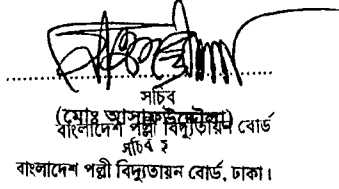 সচিব
(মোঃ আসাফউদ্দৌলা)
বাংলাদেশ পল্লী বিদ্যুতায়ন বোর্ড
সচিব
বাংলাদেশ পল্লী বিদ্যুতায়ন বোর্ড, ঢাকা।